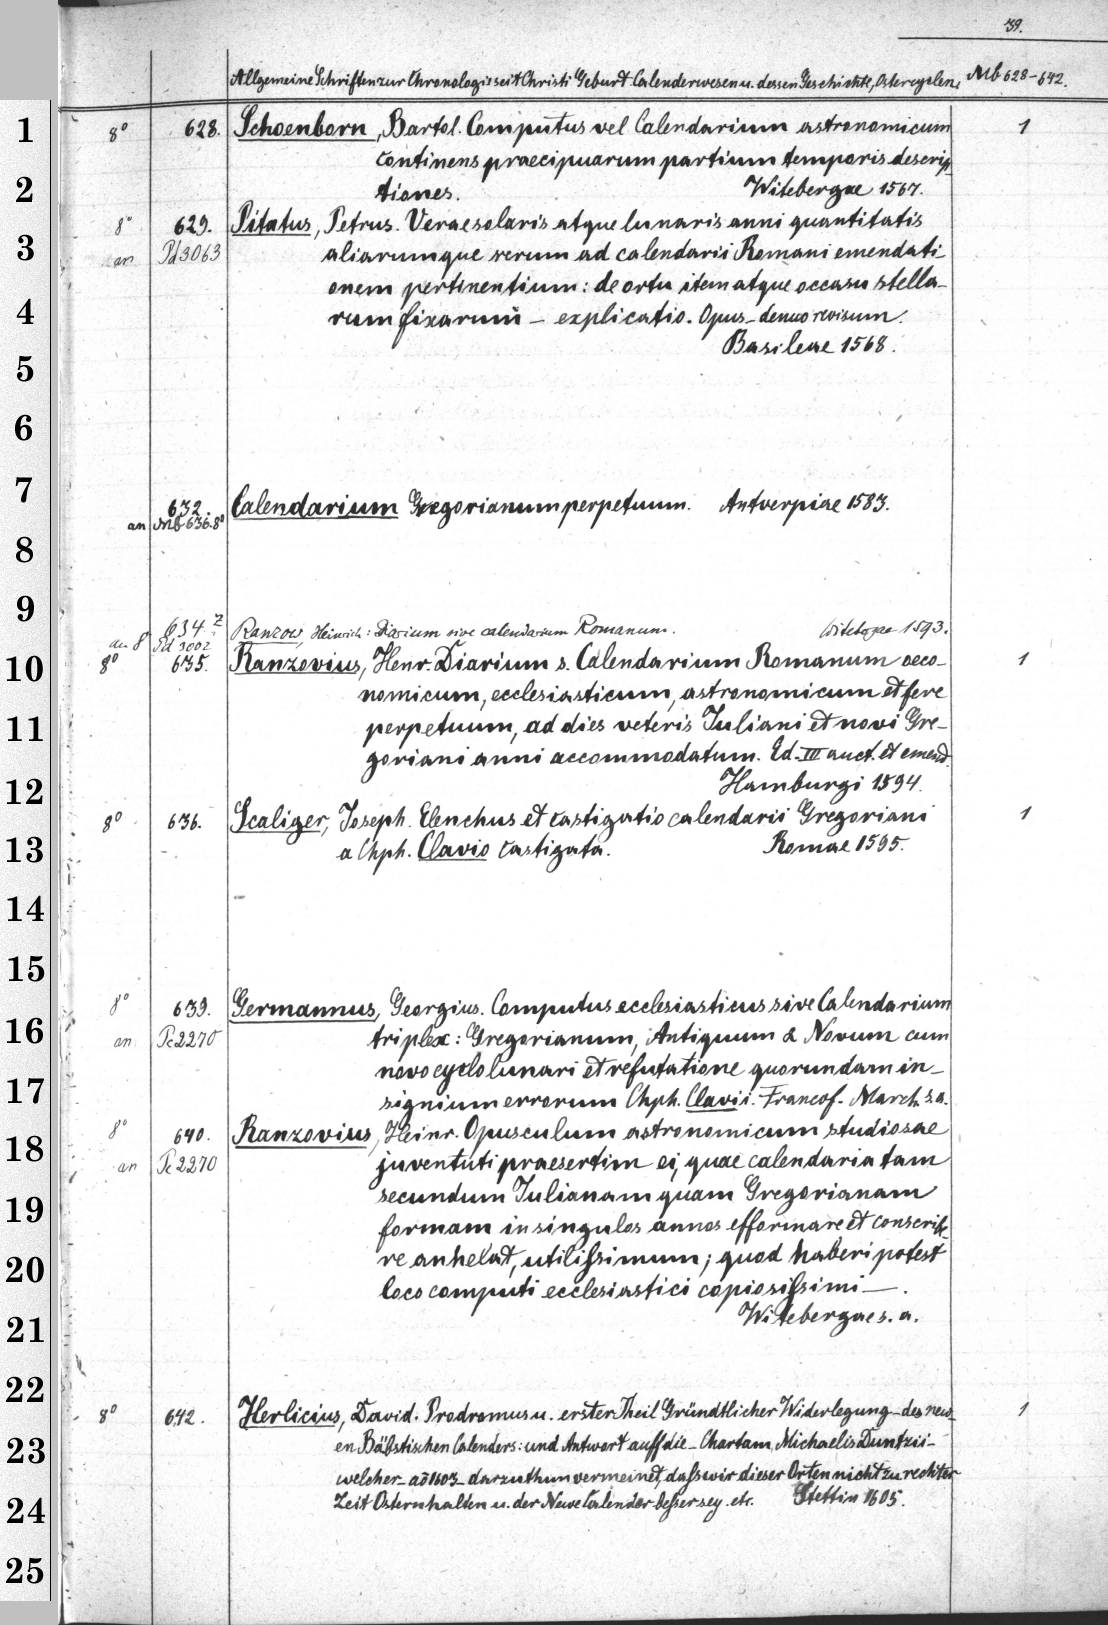 39.
Allgemeine Schriften zur Chronologie seit Christi Geburt Calenderwesen u. dessen Geschichte, Ostercyclen. Mb 628-642.
1 8° 628. Schoenborn, Bartol. Computus vel Calendarium astronomicum 1
continens praecipuarum partium temporis descrip-
2 tiones. Witebergae 1567.
8° 629. Pitatus, Petrus. Verae solaris atque lunaris anni quantitatis
3 an Pd 3063 aliarumque rerum ad calendarii Romani emendati-
onem pertinentium: de ortu item atque occasu stella-
4 rum fixarum – explicatio. Opus – denuo revisum.
Basileae 1568.
5
6
7
632. Calendarium Gregorianum perpetuum. Antverpiae 1583.
an Mb 636.8°
8
9
634 z Ranzow, Heinrich: Diarium sive calendarium Romanum. 1593.
an 8° Pd 3002
10 8° 635. Ranzovius, Henr. Diarium s. Calendarium Romanum oeco- 1
nomicum, ecclesiasticum, astronomicum et fere
11 perpetuum, ad dies veteris Iuliani et novi Gre-
goriani anni accommodatum. Ed. III auct. et emend.
12 Hamburgi 1594.
8° 636. Scaliger, Joseph. Elenchus et castigatio calendarii Gregoriani 1
13 a Chph. Clavio castigata. Romae 1595.
14
15
8° 639. Germannus, Georgius. Computus ecclesiasticus sive Calendarium
16 an Pc 2270 triplex: Gregorianum, Antiquum & Novum cum
novo cyclo lunari et refutatione quorundam in-
17 signium errorum Chph. Clavii. Francof. March. s.a.
8° 640. Ranzovius, Heinr. Opusculum astronomicum studiosae
18 an Pc 2270 juventuti praesertim ei, quae calendaria tam
secundum Iulianam quam Gregorianam
19 formam in singulos annos efformare et conscribe-
20 re anhelat, utilissimum; quod haberi potest
loco computi ecclesiastici copiosissimi –.
21 Witebergae s. a.
22
8° 642. Herlicius, David. Prodromus u. erster Theil Gründtlicher Widerlegung – des new- 1
23 en Bäbstischen Calenders: und Antwort auff die – Chartam Michaelis Duntzii –
welcher – aō 1603 – darzuthun vermeinet, dass wir dieser Orten nicht zu rechter
24 Zeit Ostern halten u. der Newe Calender besser sey. etc. Stettin 1605.
25